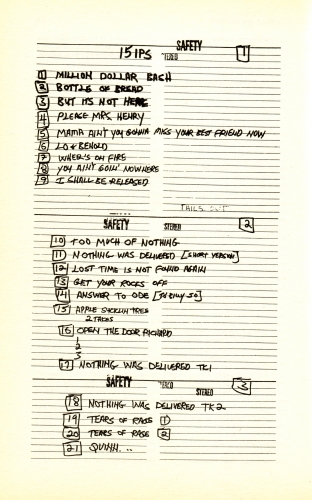 15 IPS SAFETY STEREO 1
1 MILLION DOLLAR BASH
2 BOTTLE OF BREAD
3 BUT ITS NOT HERE
4 PLEASE MRS. HENRY
5 MAMA AIN'T YOU GONNA MISS YOUR BEST FRIEND NOW
6 LO & BEHOLD
7 WHEEL'S ON FIRE
8 YOU AIN'T GOIN' NOWHERE
9 I SHALL BE RELEASED
TAILS OUT
SAFETY STEREO 2
10 TOO MUCH OF NOTHING
11 NOTHING WAS DELIVERED [SHORT VERSION]
12 LOST TIME IS NOT FOUND AGAIN
13 GET YOUR ROCKS OFF
14 ANSWER TO ODE
15 APPLE SUCKLIN TREE
2 TAKES
16 OPEN THE DOOR RICHARD
1
2
3
17 NOTHING WAS DELIVERED TK1
SAFETY STEREO 3
18 NOTHING WAS DELIVERED TK 2
19 TEARS OF RAGE 1
20 TEARS OF RAGE 2
21 QUINN...